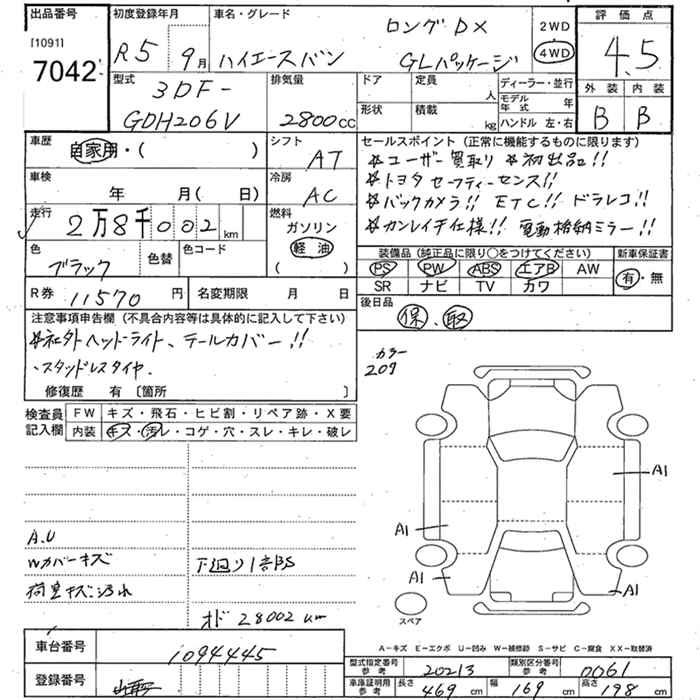 出品番号
[1091]
7042
初度登録年月
R5年9月
車名・グレード
ハイエースバン
ロング DX
GLパッケージ
2WD
4WD
評価点
4.5
外装 内装
B B
型式
3DF-
GDH206V
排気量
2800cc
ドア
形状
定員
人
積載
kg
ディーラー・並行
モデル年式 年
ハンドル 左・右
車歴
自家用・( )
シフト
AT
車検
年 月( 日)
冷房
AC
走行
2万8千002km
燃料
ガソリン
軽油
( )
色
ブラック
色替
色コード
R券 11570円
名変期限 月 日
セールスポイント(正常に機能するものに限ります)
*ユーザー買取り *初出品!!
*トヨタセーフティーセンス!!
*バックカメラ!! ETC!! ドラレコ!!
*カンレイチ仕様!! 電動格納ミラー!!
装備品(純正品に限り○をつけてください)
PS PW ABS エアB AW
SR ナビ TV カワ
新車保証書
有・無
後日品
保、取
注意事項申告欄(不具合内容等は具体的に記入して下さい)
*社外ヘッドライト、テールカバー!!
、スタッドレスタイヤ、
修復歴 有〔箇所 〕
検査員記入欄
FW キズ・飛石・ヒビ割・リペア跡・X要
内装 キズ・汚レ・コゲ・穴・スレ・キレ・破レ
カラー
209
A1
A1
A1
A1
スペア
A.U
Wカバーキズ
荷室キズ汚れ
下廻り1部S
オド 28002km
A－キズ E－エクボ U－凹み W－補修跡 S－サビ C－腐食 XX－取替済
車台番号 1094445
登録番号
型式指定番号 参考 20213
類別区分番号 参考 0061
車庫証明用 参考 長さ 469cm 幅 169cm 高さ 198cm